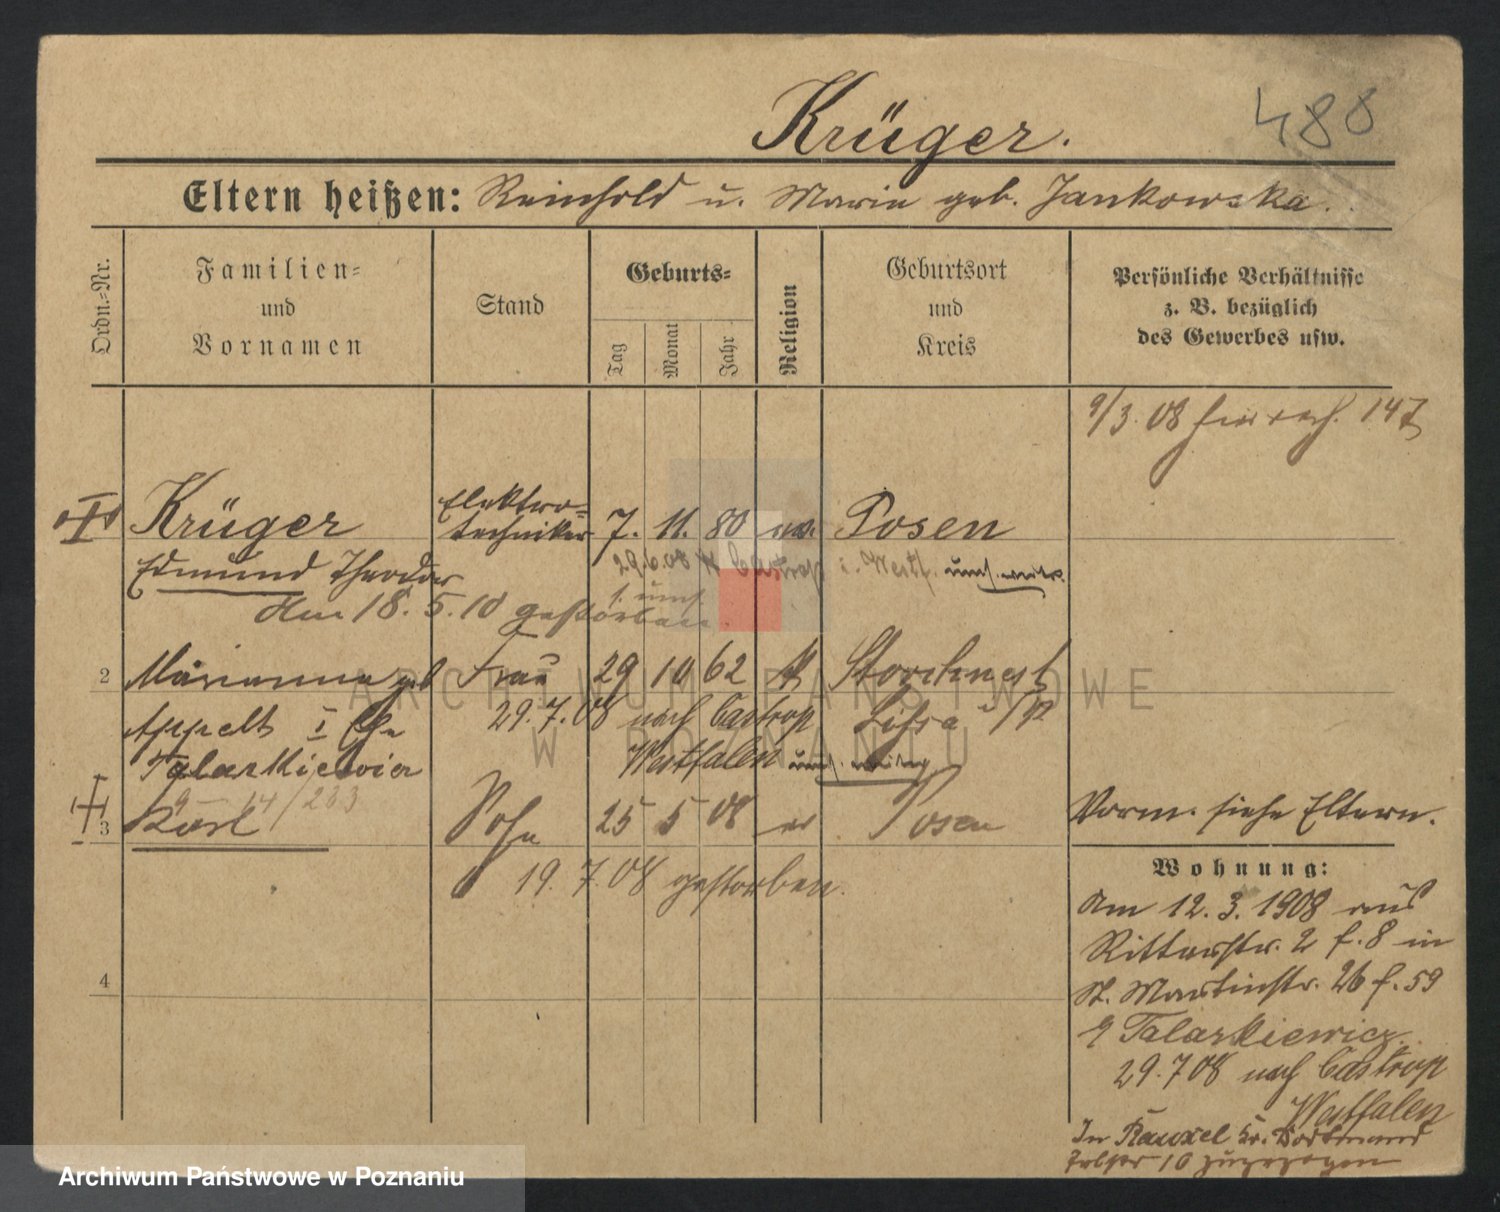 Krüger.
488
Eltern heißen: Reinhold u. Marie geb. Jankowska.
Ordn.-Nr.
Familien-
und
Vornamen
Stand
Geburts-
Tag
Monat
Jahr
Religion
Geburtsort
und
Kreis
Persönliche Verhältnisse
z. B. bezüglich
des Gewerbes usw.
9/3. 08 147
Krüger
Elektro-
techniker
7. 11. 80 ev. Posen
Edmund Theodor
29.6.08 n Castrop i. Westf.
Am 18. 5. 10 gestorben.
2
Marianna geb
Frau
29 10 62 k Storchnest
Appelt I Ehe
29.7.08 nach Castrop
Lissa i/P
Talarkiewicz
Westfalen
14/233
3
Karl
Sohn
25 5 08 ev Posen
Vorm. siehe Eltern.
19. 7. 08 gestorben.
4
Wohnung:
Am 12. 3. 1908 aus
Ritterstr. 2 f. 8 in
St. Martinstr. 26 f. 59
Talarkiewicz
29.7 08 nach Castrop
Westfalen
In Rauxel Kr. Dortmund
10 zugezogen
ARCHIWUM PAŃSTWOWE
W POZNANIU
Archiwum Państwowe w Poznaniu